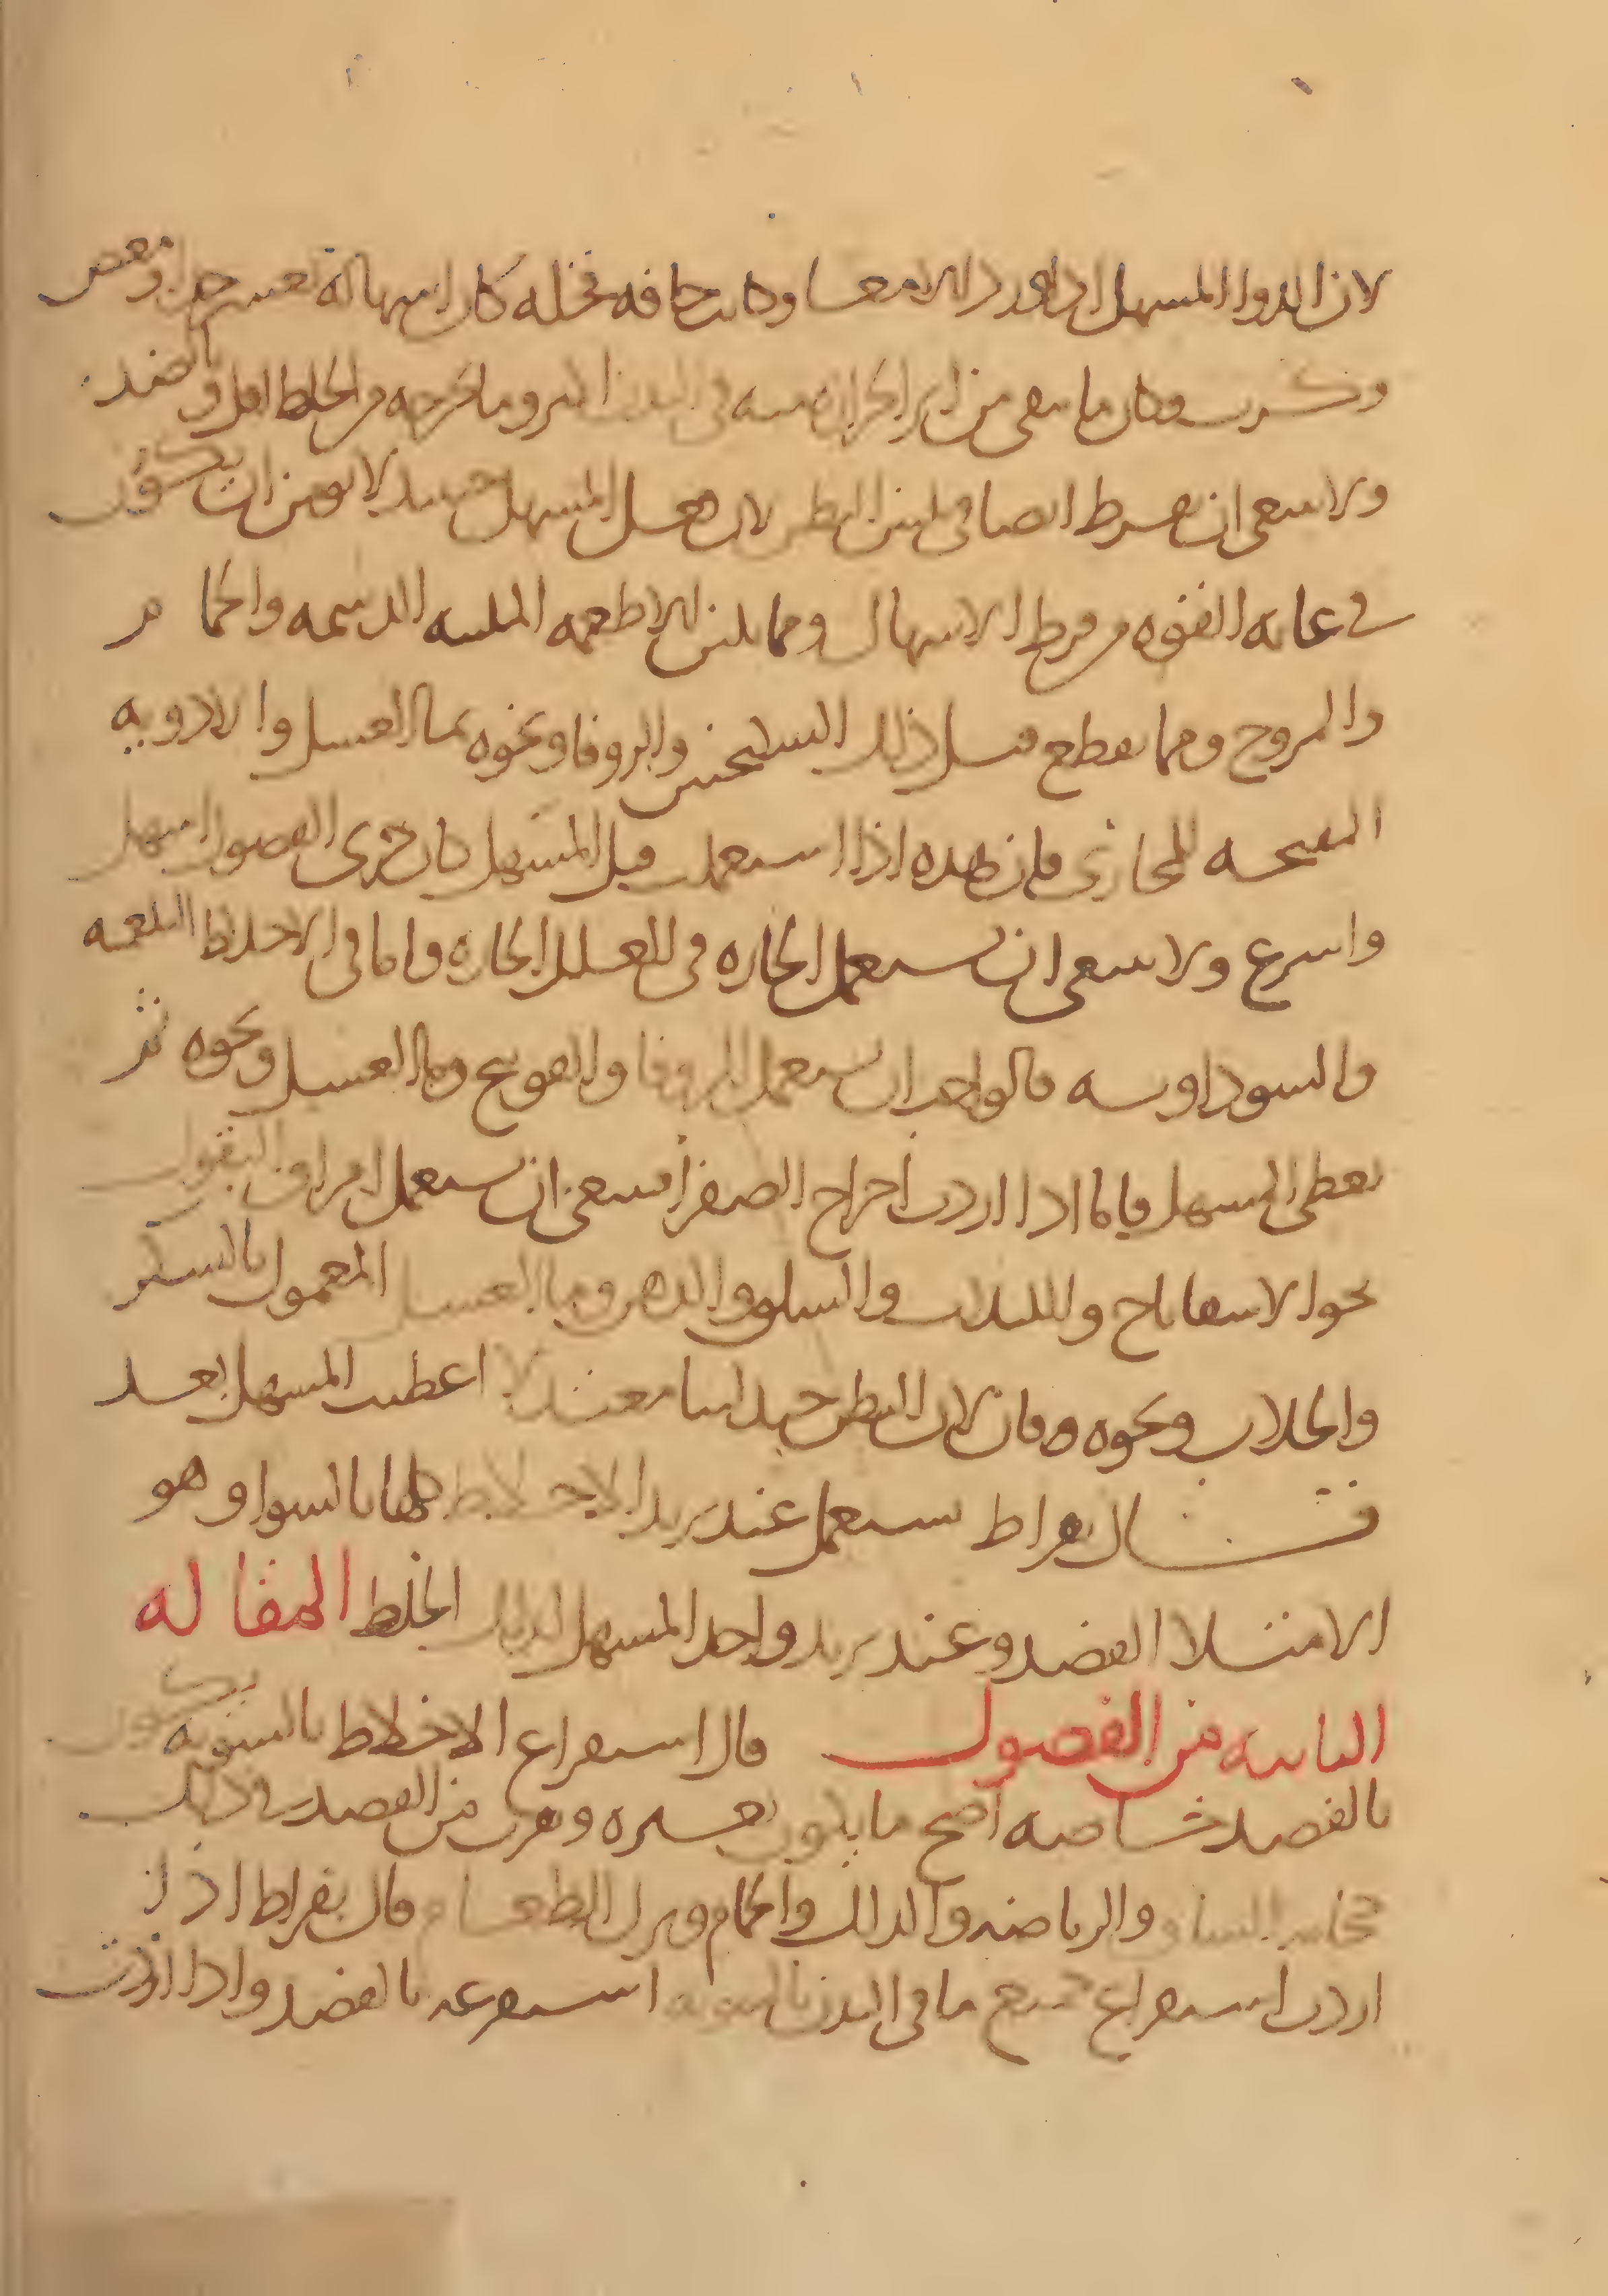 لان الدوا المسهل اذا ورد الامعا وكانت جافه قحله كان اسهاله بعسر جدا ومغص
وكرب وكان ما يبقى من اثر الحراره منه في البدن اكثر وما يخرجه من الخلط اقل وبالضد
ولا ينبغي ان يفرط ايضا في لين البطن لان فعل المسهل حينيذ لا يومن ان يكون
في غايه القوه من فرط الاسهال ومما يلين الاطعمه اللينه الدسمه والحمام
والمروخ ومما يقطع قبل ذلك السكنجبين والزوفا ونحوه بما العسل والادويه
المفتحه للمجاري فان هذه اذا استعملت قبل المسهل كان مجرى الفصول اسهل
واسرع ولا ينبغي ان يستعمل الحاره في العلل الحاره واما في الاخلاط البلغميه
والسوداويه فالواجب ان يستعمل الزوفا والفوتنج وما العسل ونحوه ثم
يعطى المسهل فاما اذا اردت اخراج الصفرا فينبغي ان يستعمل امراق البقول
نحو الاسفاناخ والبلاب والسلق والدهن وما العسل المعمول بالسكر
والجلاب ونحوه فان كان البطن جيدا لينا معتدلا اعطيت المسهل بعد
قال بقراط يستعمل عند تزيد الاخلاط كلها بالسوا وهو
الامتلا الفصد وعند تزيد واحد المسهل لذلك الخلط المقاله
الثانيه من الفصول قال استفراغ الاخلاط بالسويه يكون
بالفصد خاصه اصح ما يكون بغيره ويقرب من الفصد في ذلك
والرياضه والدلك والحمام وترك الطعام قال بقراط اذا
اردت استفراغ جميع ما في البدن بالسويه استفرغه بالفصد واذا اردت